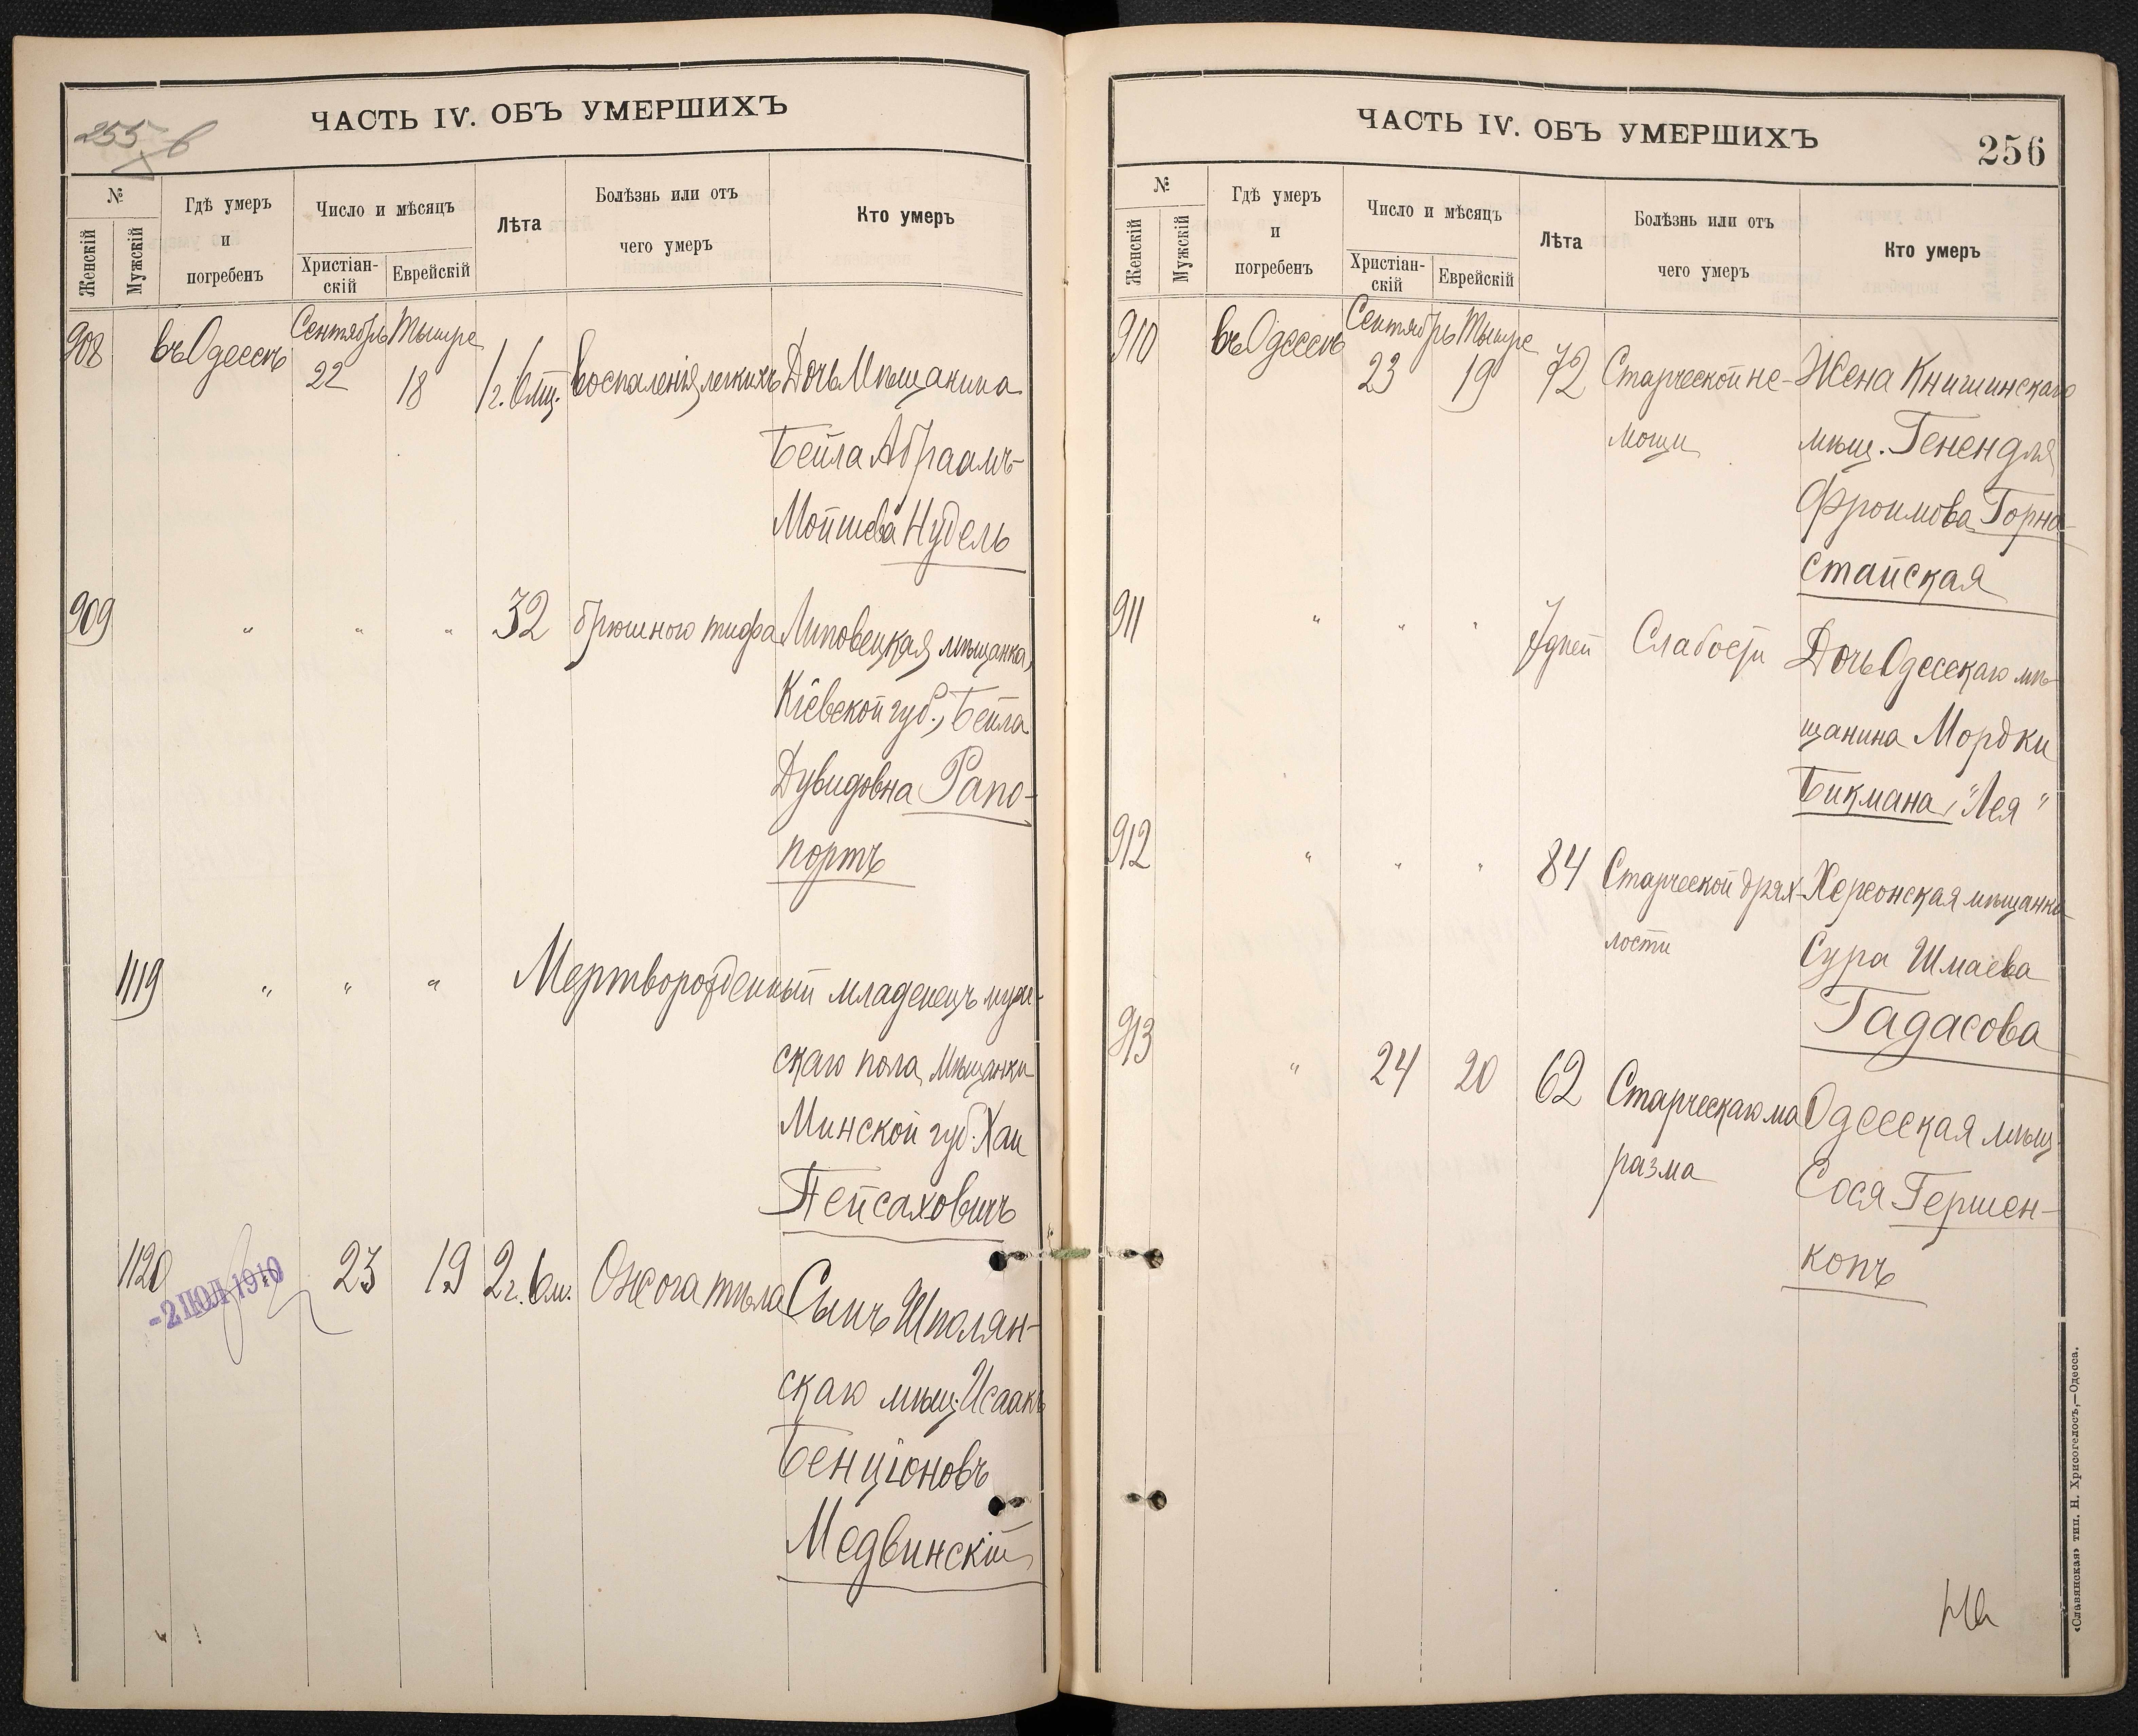 255 в
ЧАСТЬ IV. ОБЪ УМЕРШИХЪ
№
Женскій
Мужскій
Гдѣ умеръ
и
погребенъ
Число и мѣсяцъ
Христіан-
скій
Еврейскій
Лѣта
Болѣзнь или отъ
чего умеръ
Кто умеръ
908 въ Одессѣ Сентябрь 22 Тишре 18 1 г. 6 мц. воспаленія легкихъ Дочь Мѣщанина
Бейла Абраамъ-
Мошева Нудель
909 " " " 32 брюшного тифа Липовецкая мѣщанка,
Кіевской губ., Бейла
Дувидовна Рапо-
портъ
1119 " " " Мертворожденный младенецъ муж-
скаго пола, Мѣщанки
Минской губ. Хаи
Пейсаховичъ
1120 " 23 19 2 г. 6 м. Ожога тѣла Сынъ Шполян-
-2 ІЮЛ 1910
скаго мѣщ. Исаакъ
Бенціоновъ
Медвинскій
ЧАСТЬ IV. ОБЪ УМЕРШИХЪ
256
№
Женскій
Мужскій
Гдѣ умеръ
и
погребенъ
Число и мѣсяцъ
Христіан-
скій
Еврейскій
Лѣта
Болѣзнь или отъ
чего умеръ
Кто умеръ
910 въ Одессѣ Сентябрь 23 Тишре 19 72 Старческой не- Жена Книшинскаго
мощи мѣщ. Генендля
Фроимова Горно-
стайская
911 " " " 7 дней Слабости Дочь Одесскаго мѣ-
щанина Мордки
Бикмана, "Лея"
912 " " " 84 Старческой дрях- Херсонская мѣщанка
лости Сура Шмаева
Гадасова
913 " 24 20 62 Старческаго ма Одесская мѣщ.
разма Сося Гершен-
копъ
«Славянская» тип. Н. Хрисогелосъ,—Одесса.